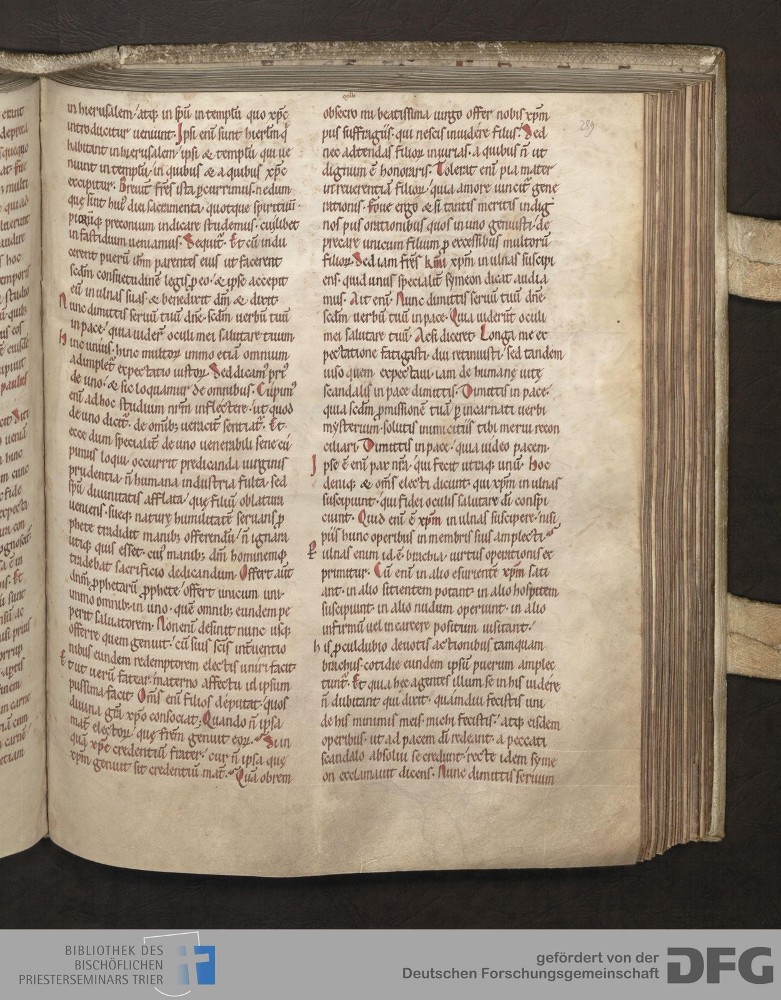 in hierusalem· atq; in spū in templū quo xp̄c
introducitur ueniunt· Ipsi enī sunt hierlm̄ q̄
habitant in hierusalem· ipsi & templū qui ue
niunt in templū· in quibus & a quibus xp̄c
excipitur· Breuit̄ fr̄s ista pcurrimus· nedum
quę sint hui᷒ diei sacramenta· quotque spirituū·
preconium indicare studemus· cuilibet
in fastidium ueniamus· Sequit̄· Et cū indu
cerent puerū ihm̄ parentes eius ut facerent
scdm̄ consuetudinē legis p eo· & ipse accepit
eū in ulnas suas· & benedixit dm̄ & dixit·
Nunc dimittis seruū tuū dn̄e· scdm̄ uerbū tuū
in pace· quia uider̄ oculi mei salutare tuum·
hinc unius· hinc multoꝝ immo etiā omnium
adimplet̄ expectatio iustoꝝ· Sed dicam᷒ pri᷒
de uno· & sic loquamur de omnibus· Cupim᷒
enī ad hoc studium nr̄m inflectere· ut quod
de uno dicit̄· de omib; ueracit̄ sentiat̄· Et
ecce dum specialit̄ de uno uenerabili sene cū
pimus loqui· occurrit predicanda uirginis
prudentia· n̄ humana industria fulta· sed
spū diuinitatis afflata· quę filiū oblatura
ueniens· sueq; naturę humilitatē seruans p
phete tradidit manib; offerendū· n̄ ignara
utiq; quis esset· cui᷒ manib; dm̄ hominemq;
tradebat sacrificio dedicandum· Offert aūt
dnm̄ pphetarū pphete· offert unicum uni·
immo omnib; in uno· quē omnib; eundem pe
perit saluatorem· Non enī desinit nunc usq;
offerre quem genuit· cū suis scīs int̄uentio
nibus eundem redemptorem electis uniri facit·
Et ut uerū fatear· materno affectu id ipsum
piissima facit· Om̄s enī filios deputat· quos
diuina gr̄a xp̄o consociat· Quando n̄ ipsa
mat̄ electoꝝ· quę frēm genuit eoꝝ· Si in
quā xp̄c credentiū frater· cur n̄ ipsa quę
xp̄m genuit sit credentiū mat̄· Qua obrem
289
obsecro mi beatissima uirgo offer nobis xp̄m
piis suffragiis· qui nescis inuidere filiis· Sed
nec adtendas filioꝝ iniurias· a quibus n̄ ut
dignum ē honoraris· Tolerat enī pia mater
irreuerentiā filioꝝ· quia amore uincit̄ gene
rationis· Foue ergo & si tantis meritis indig
nos piis orationibus quos in uno genuisti· de
precare unicum filium p excessibus multorū
filioꝝ· Sed iam fr̄s kmi xp̄m in ulnas suscipi
ens· quid unus specialit̄ symeon dicat audia
mus· Ait enī· Nunc dimittis seruū tuū dn̄e·
scdm̄ uerbū tuū in pace· Quia uiderūt oculi
mei salutare tuū· Acsi diceret· Longa me ex
pectatione fatigasti· diu retinuisti· sed tandem
uiso quem expectaui· iam de humanę uitę
scandalis in pace dimittis· Dimittis in pace·
quia scdm̄ pmissionē tuā p incarnati uerbi
mysterium· solutis inimicitiis tibi merui recon
ciliari· Dimittis in pace· quia uideo pacem·
Ipse ē enī pax nr̄a· qui fecit utraq; unū· hoc
deniq; & om̄s electi dicunt· qui xp̄m in ulnas
suscipiunt· qui fidei oculis salutare dī conspi
ciunt· Quid enī ē xp̄m in ulnas suscipere· nisi
piis hunc operibus in membris suis amplecti·
Per ulnas enim id ē brachia· uirtus operationis ex
primitur· Cū enī in alio esurientē xp̄m sati
ant· in alio sitientem potant· in alio hospitem
suscipiunt· in alio nudum operiunt· in alio
infirmū uel in carcere positum uisitant·
his p culdubio deuotis actionibus tamquam
brachiis cotidie eundem ipsū puerum amplec
tunt̄· Et quia hec agentes illum se in his uidere
n̄ dubitant qui dixit· quamdiu fecistis uni
de his minimis meis· michi fecistis· atq; eisdem
operibus· ut ad pacem dī redeant· a peccati
scandalo absolui se credunt· recte idem syme
on exclamauit dicens· Nunc dimittis seruum
BIBLIOTHEK DES
BISCHÖFLICHEN
PRIESTERSEMINARS TRIER
gefördert von der
Deutschen Forschungsgemeinschaft
DFG